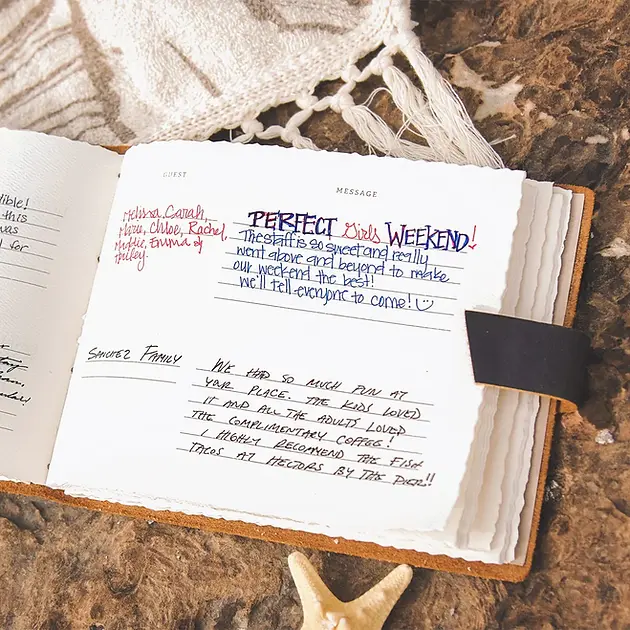 dible!
this
was
l for
GUEST
MESSAGE
Melissa, Carah,
Mary, Chloe, Rachel,
Maddie, Emma &
Hailey.
PERFECT Girls WEEKEND!
The staff is so sweet and really
went above and beyond to make
our weekend the best!
we'll tell everyone to come!
SANCHEZ FAMILY
WE HAD SO MUCH FUN AT
YOUR PLACE. THE KIDS LOVED
IT AND ALL THE ADULTS LOVED
THE COMPLIMENTARY COFFEE!
I HIGHLY RECOMEND THE FISH
TACOS AT HECTORS BY THE PIER!!